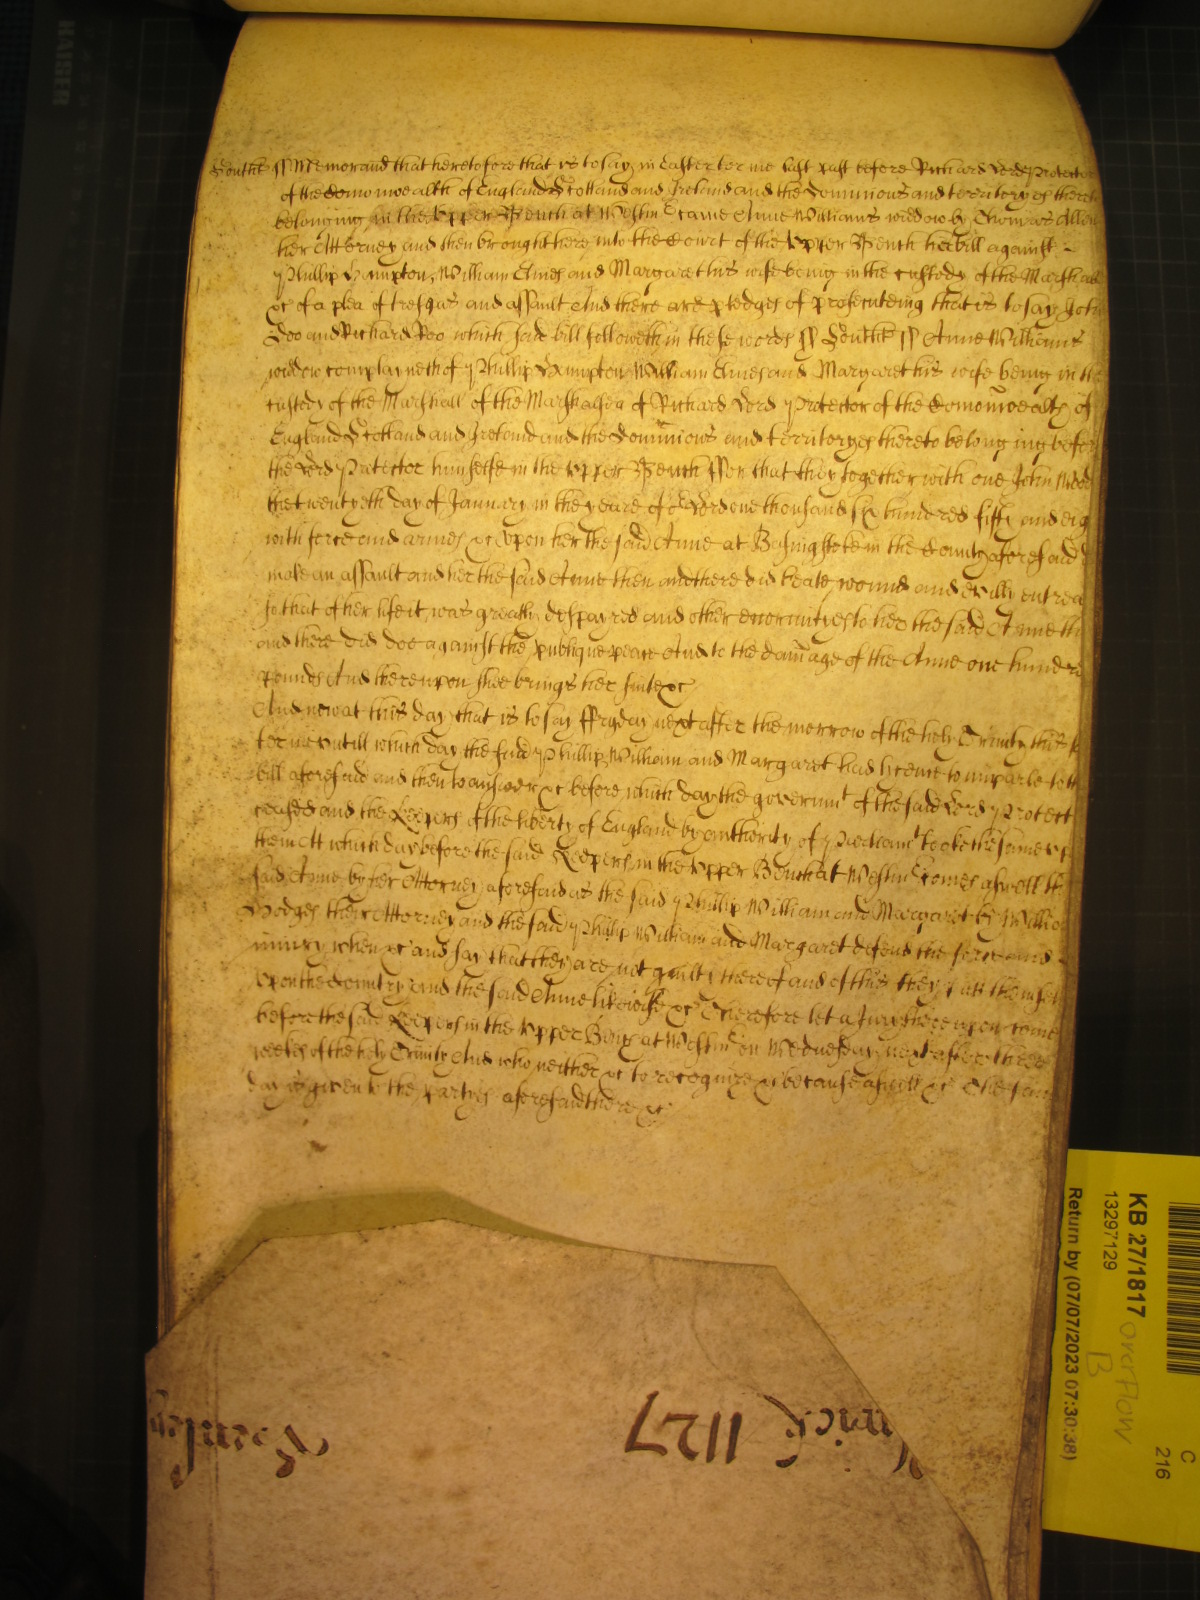 South't ss Memorand that heretofore that is to say in Easter terme last past before Richard Lord Protector
of the Comonwealth of England Scotland and Ireland and the Dominions and territoryes thereto
belonging in the Upper Bench at Westm' came Anne Williams widow by Thomas Allen
her Attorney and then brought here into the Court of the Upper Bench her bill against
Phillip Hampton, William Ames and Margaret his wife being in the custody of the Marshall
&c of a plea of trespas and assault And there are pledges of prosecuteing that is to say John
Doo and Richard Roo which said bill followeth in these words ss South't ss Anne Williams
widow complayneth of Phillip Hampton William Ames and Margaret his wife being in the
custody of the Marshall of the Marshalsea of Richard Lord Protector of the Comonwealth of
England Scotland and Ireland and the Dominions and territoryes thereto belonging before
the Lord Protector himselfe in the Upper Bench ffor that they together with one John
the twentyeth day of January in the yeare of o'r Lord one thousand six hundred fifty and eig
with force and armes &c upon her the said Anne at Basingstoke in the County aforesaid
make an assault and her the said Anne then and there did beate wound and evilly entrea
so that of her life it was greatly despayred and other enormityes to her the said Anne th
and there did doe against the publique peace And to the damage of the Anne one hundred
pounds And thereupon shee brings her suite &c
And now at this day that is to say ffryday next after the morrow of the holy Trinity this s
terme untill which day the said Phillip William and Margaret had licence to imparle to th
bill aforesaid and then to answer &c before which day the governm't of the said Lord Protect
ceased and the Keepers of the liberty of England by authority of Parliam't tooke the same up
them Att which day before the said Keepers in the Upper Bench at Westm' comes aswell th
said Anne by her Attorney aforesaid as the said Phillip William and Margaret by William
Hodges their Attorney and the said Phillip William and Margaret defend the force and
iniury when &c and say that they are not guilty thereof and of this they putt themselv
upon the Country and the said Anne likewise &c Therefore let a Jury thereupon come
before the said Keepers in the Upper Bench at Westm' on Wednesday next after three
weekes of the holy Trinity And who neither &c to recognize &c because aswell &c The same
day is given to the partyes aforesaid there &c
1127
KB 27/1817
13297129
Return by (07/07/2023 07:30:38)
overflow
B
C
216
HAISER